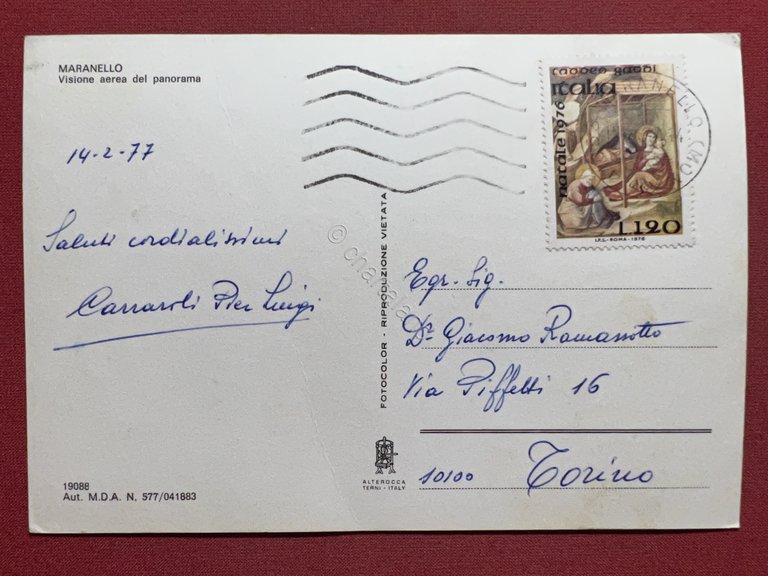 MARANELLO
Visione aerea del panorama
14-2-77
Saluti cordialissimi
Carraroli Pier Luigi
19088
Aut. M.D.A. N. 577/041883
FOTOCOLOR - RIPRODUZIONE VIETATA
ALTEROCCA
TERNI - ITALY
taddeo gaddi
italia
natale 1976
L120
I.P.S. - ROMA - 1976
MARANELLO (MO)
Egr. Sig.
Dr. Giacomo
Via Piffetti 16
10100 Torino